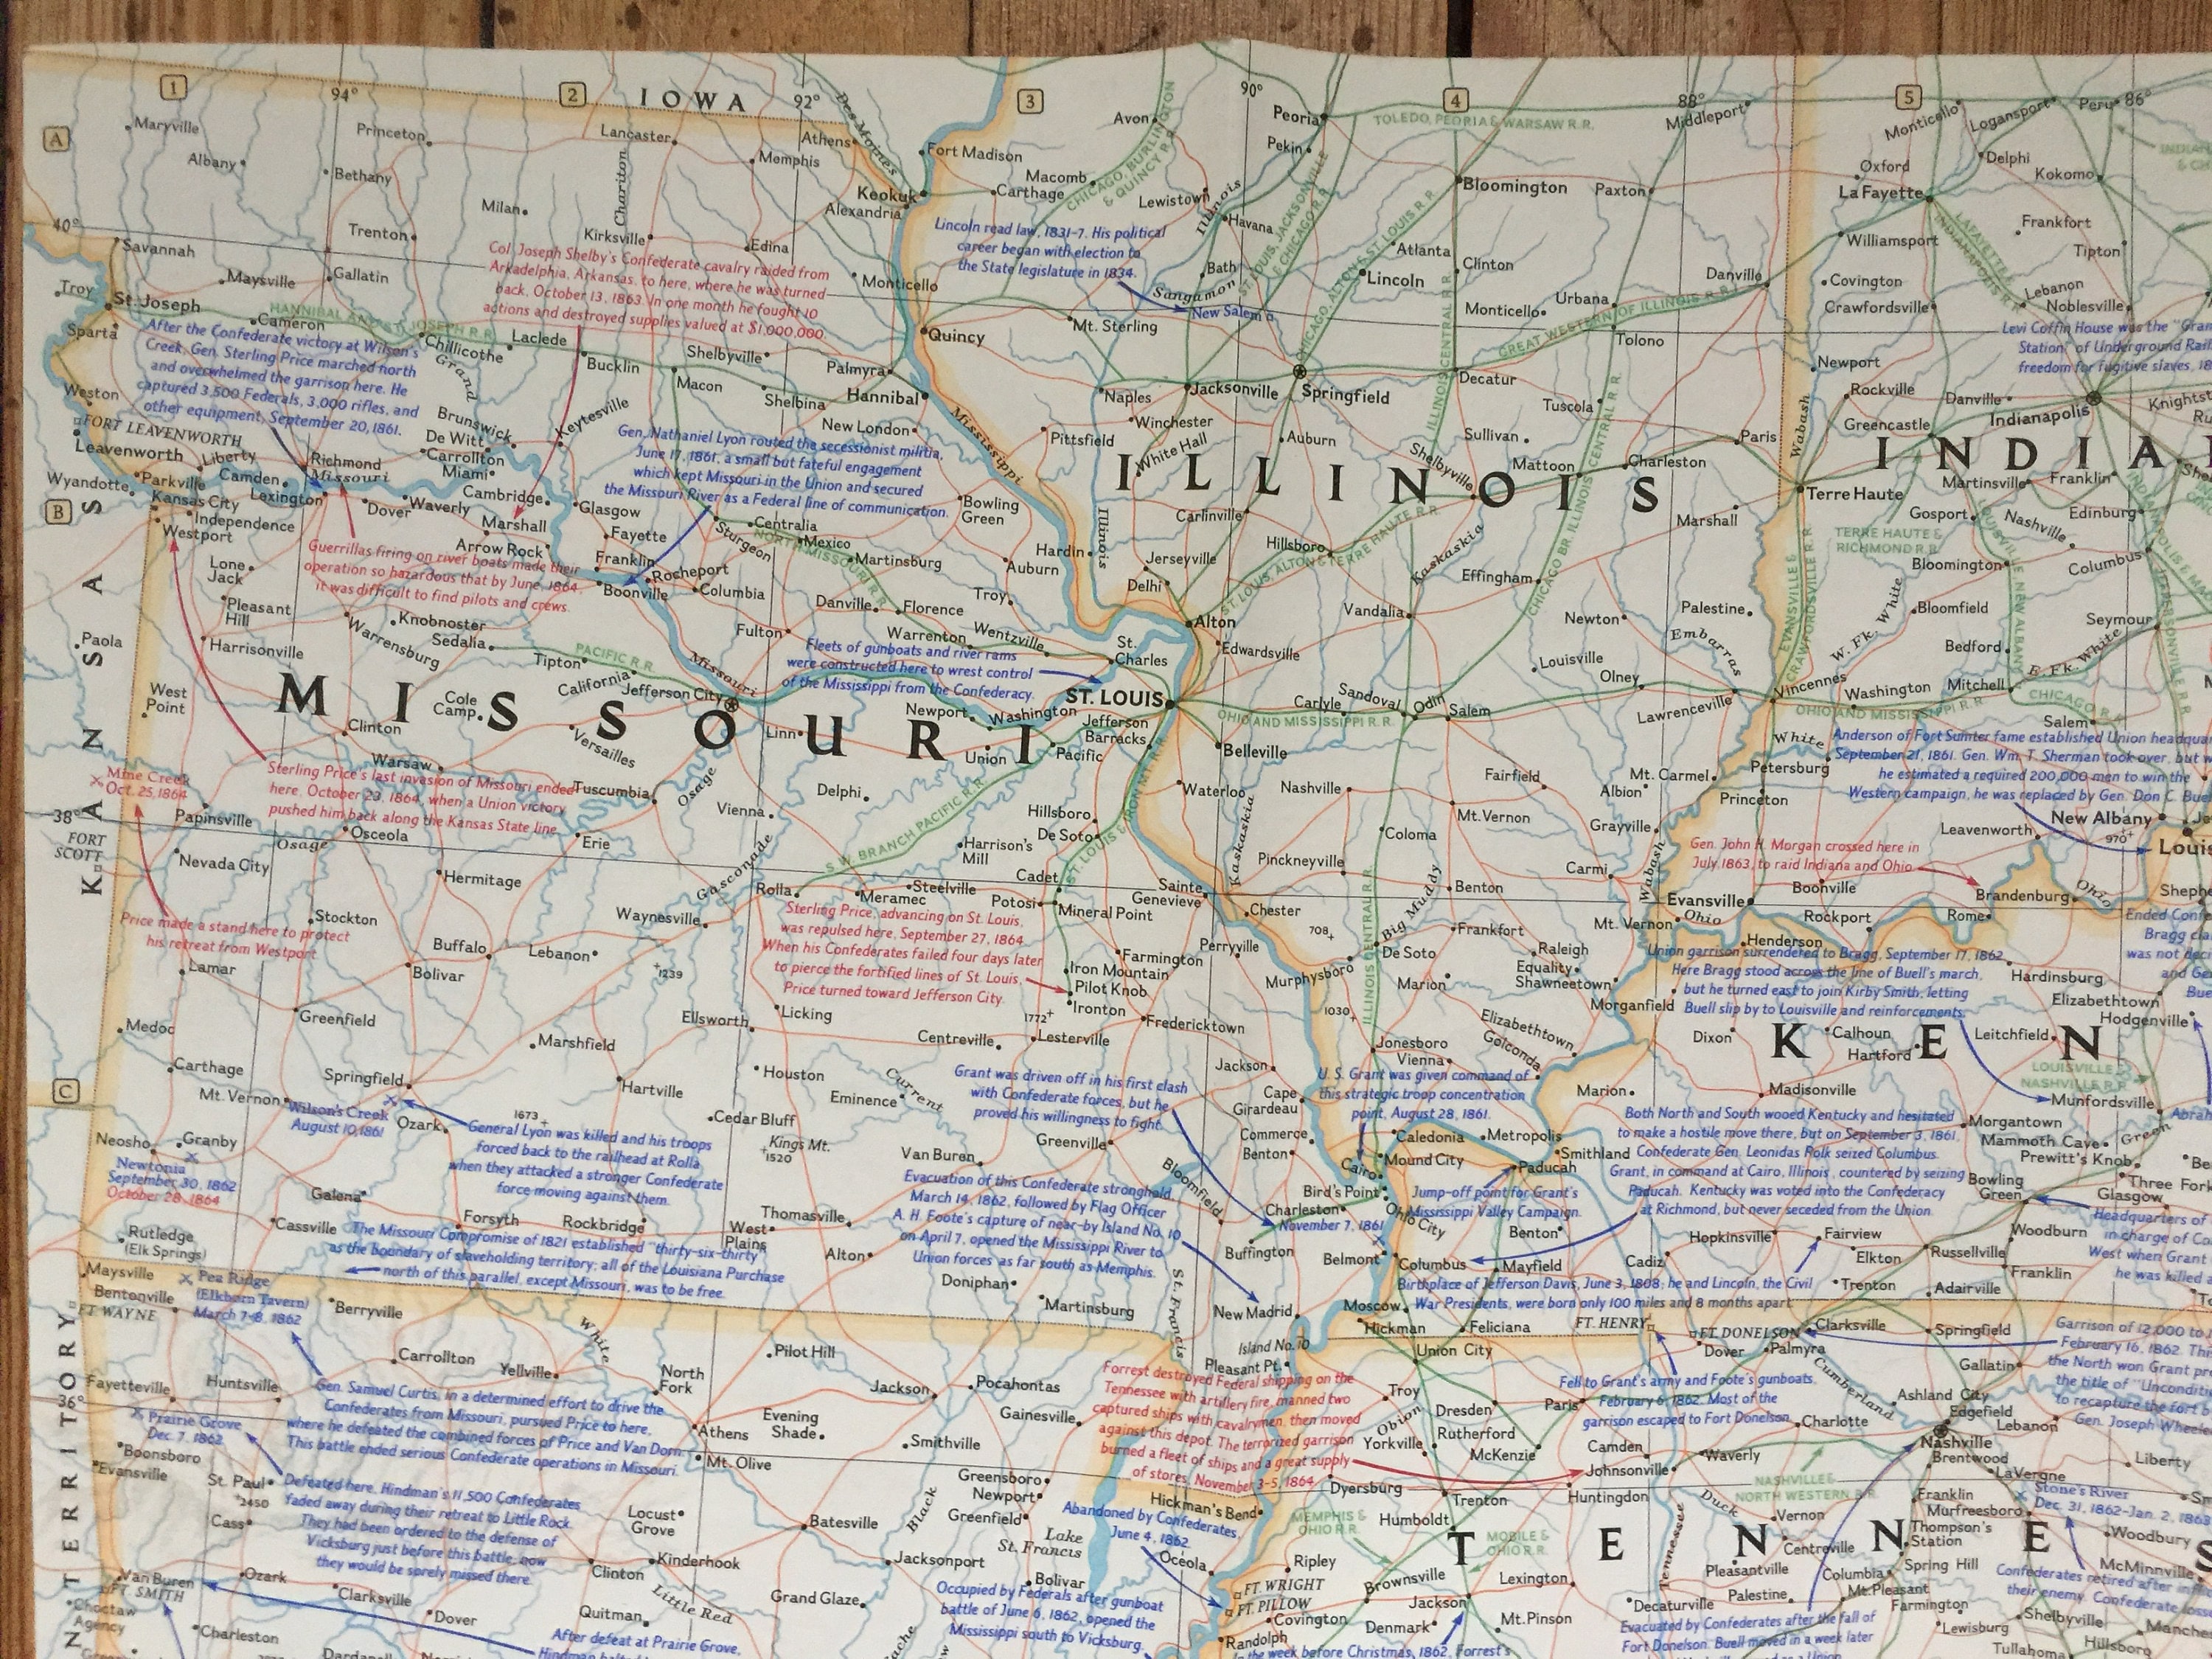 1
94°
2
IOWA
92°
Des Moines
3
90°
4
88°
5
86°
A
Maryville
Princeton
Lancaster
Athens
Avon
Peoria
TOLEDO, PEORIA & WARSAW R.R.
Middleport
Monticello
Logansport
Peru
Albany
Bethany
Chariton
Memphis
Fort Madison
Pekin
Oxford
Delphi
Kokomo
Keokuk
Alexandria
Macomb
Carthage
CHICAGO, BURLINGTON
& QUINCY R.R.
Lewistown
Illinois
Bloomington
Paxton
La Fayette
40°
Trenton
Milan
Kirksville
Edina
Havana
Frankfort
Williamsport
Tipton
LAFAYETTE &
INDIANAPOLIS R.R.
Savannah
Maysville
Gallatin
Monticello
Bath
Sangamon
Atlanta
Lincoln
Clinton
Danville
Covington
Lebanon
Noblesville
Crawfordsville
Col. Joseph Shelby's Confederate cavalry raided from
Arkadelphia, Arkansas, to here, where he was turned
back, October 13, 1863. In one month he fought 10
actions and destroyed supplies valued at $1,000,000.
Lincoln read law, 1831-7. His political
career began with election to
the State legislature in 1834.
New Salem
ST. LOUIS, JACKSONVILLE
& CHICAGO R.R.
CHICAGO, ALTON & ST. LOUIS R.R.
ILLINOIS CENTRAL R.R.
Monticello
Urbana
GREAT WESTERN OF ILLINOIS R.R.
Tolono
Troy
St. Joseph
Sparta
HANNIBAL AND ST. JOSEPH R.R.
Cameron
Chillicothe
Laclede
Bucklin
Shelbyville
Palmyra
Quincy
Mt. Sterling
Newport
After the Confederate victory at Wilson's
Creek, Gen. Sterling Price marched north
and overwhelmed the garrison here. He
captured 3,500 Federals, 3,000 rifles, and
other equipment, September 20, 1861.
Grand
Macon
Shelbina
Hannibal
Naples
Jacksonville
Springfield
Decatur
Levi Coffin House was the "Gran
Station" of Underground Rail
freedom for fugitive slaves, 18
Weston
FORT LEAVENWORTH
Leavenworth
Brunswick
Keytesville
De Witt
Carrollton
Miami
New London
Mississippi
Winchester
White Hall
Pittsfield
Auburn
Sullivan
Tuscola
Paris
Wabash
Rockville
Danville
Indianapolis
Knightst
Greencastle
Shelbyville
Mattoon
Charleston
CHICAGO BR. ILLINOIS CENTRAL R.R.
ILLINOIS
INDIA
Wyandotte
Parkville
Liberty
Camden
Richmond
Missouri
Lexington
Kansas City
Independence
Westport
Dover
Waverly
Cambridge
Marshall
Glasgow
Fayette
Gen. Nathaniel Lyon routed the secessionist militia,
June 17, 1861, a small but fateful engagement
which kept Missouri in the Union and secured
the Missouri River as a Federal line of communication.
Bowling
Green
Carlinville
Terre Haute
Martinsville
Franklin
B
Lone
Jack
Pleasant
Hill
Arrow Rock
Franklin
Boonville
Rocheport
Columbia
Sturgeon
Centralia
Mexico
NORTH MISSOURI R.R.
Martinsburg
Auburn
Hardin
Illinois
Jerseyville
Delhi
Hillsboro
ST. LOUIS, ALTON & TERRE HAUTE R.R.
Kaskaskia
Effingham
Marshall
TERRE HAUTE &
RICHMOND R.R.
Gosport
Nashville
Edinburg
Columbus
Bloomington
Guerrillas firing on river boats made their
operation so hazardous that by June, 1864
it was difficult to find pilots and crews.
KANSAS
Paola
Harrisonville
Knobnoster
Warrensburg
Sedalia
Tipton
PACIFIC R.R.
Fulton
Danville
Florence
Troy
Warrenton
Wentzville
Alton
Edwardsville
Vandalia
Newton
Palestine
Embarras
EVANSVILLE &
CRAWFORDSVILLE R.R.
W. Fk. White
Bloomfield
Seymour
Bedford
LOUISVILLE, NEW ALBANY
JEFFERSONVILLE R.R.
E. Fk. White
Fleets of gunboats and river rams
were constructed here to wrest control
of the Mississippi from the Confederacy.
St.
Charles
Louisville
Olney
Lawrenceville
Vincennes
Washington
Mitchell
CHICAGO R.R.
Salem
MISSOURI
West
Point
California
Jefferson City
Missouri
Cole
Camp
Clinton
Versailles
Linn
Newport
Washington
ST. LOUIS
Jefferson
Barracks
Union
Pacific
OHIO AND MISSISSIPPI R.R.
Belleville
Carlyle
Sandoval
Odin
Salem
OHIO AND MISSISSIPPI R.R.
Anderson of Fort Sumter fame established Union headquar
September 21, 1861. Gen. Wm. T. Sherman took over, but w
he estimated a required 200,000 men to win the
Western campaign, he was replaced by Gen. Don C. Buel
Mine Creek
Oct. 25, 1864
Sterling Price's last invasion of Missouri ended
here, October 23, 1864, when a Union victory
pushed him back along the Kansas State line.
Warsaw
Tuscumbia
Osage
Vienna
Delphi
S.W. BRANCH PACIFIC R.R.
Waterloo
Nashville
Fairfield
Mt. Carmel
Albion
White
Petersburg
Princeton
38°
FORT
SCOTT
Papinsville
Osceola
Osage
Erie
Hillsboro
De Soto
ST. LOUIS & IRON MT. R.R.
Kaskaskia
Coloma
Mt. Vernon
Grayville
Leavenworth
New Albany
970
Louis
Nevada City
Hermitage
Gasconade
Harrison's
Mill
Cadet
Pinckneyville
Carmi
Wabash
Gen. John H. Morgan crossed here in
July 1863, to raid Indiana and Ohio
Boonville
Brandenburg
Ohio
Shephe
Rolla
Meramec
Steelville
Potosi
Mineral Point
Sainte
Genevieve
Chester
Benton
Evansville
Ohio
Mt. Vernon
Rockport
Rome
Stockton
Waynesville
Price made a stand here to protect
his retreat from Westport
Sterling Price, advancing on St. Louis,
was repulsed here, September 27, 1864.
When his Confederates failed four days later
to pierce the fortified lines of St. Louis,
Price turned toward Jefferson City.
708
Big Muddy
ILLINOIS CENTRAL R.R.
Frankfort
Henderson
Ended Confe
Bragg cla
was not deci
and Ge
Bue
Lamar
Buffalo
Bolivar
Lebanon
1239
Farmington
Perryville
Iron Mountain
Pilot Knob
Ironton
Murphysboro
De Soto
Marion
Raleigh
Equality
Shawneetown
Union garrison surrendered to Bragg, September 17, 1862.
Here Bragg stood across the line of Buell's march,
but he turned east to join Kirby Smith, letting
Buell slip by to Louisville and reinforcements.
Hardinsburg
Elizabethtown
Hodgenville
Morganfield
Medoc
Greenfield
Ellsworth
Licking
1772
Fredericktown
1030
Elizabethtown
Golconda
Dixon
Calhoun
Hartford
Leitchfield
KEN
Marshfield
Centreville
Lesterville
Jonesboro
Vienna
C
Carthage
Springfield
Hartville
Houston
Current
Eminence
Jackson
Cape
Girardeau
Grant was driven off in his first clash
with Confederate forces, but he
proved his willingness to fight.
U. S. Grant was given command of
this strategic troop concentration
point, August 28, 1861.
Marion
Madisonville
LOUISVILLE &
NASHVILLE R.R.
Munfordsville
Abrah
Mt. Vernon
Wilson's Creek
August 10, 1861
Ozark
1673
Cedar Bluff
Kings Mt.
1520
Greenville
Commerce
Benton
Caledonia
Metropolis
Mound City
Smithland
Paducah
Both North and South wooed Kentucky and hesitated
to make a hostile move there, but on September 3, 1861,
Confederate Gen. Leonidas Polk seized Columbus.
Grant, in command at Cairo, Illinois, countered by seizing
Paducah. Kentucky was voted into the Confederacy
at Richmond, but never seceded from the Union.
Morgantown
Mammoth Cave
Green
Prewitt's Knob
Neosho
Granby
Newtonia
September 30, 1862
October 28, 1864
General Lyon was killed and his troops
forced back to the railhead at Rolla
when they attacked a stronger Confederate
force moving against them.
Van Buren
Evacuation of this Confederate stronghold,
March 14, 1862, followed by Flag Officer
A. H. Foote's capture of near-by Island No. 10
on April 7, opened the Mississippi River to
Union forces as far south as Memphis.
Bloomfield
Cairo
Bird's Point
Charleston
November 7, 1861
Ohio City
Jump-off point for Grant's
Mississippi Valley Campaign.
Bowling
Green
Three Fork
Glasgow
Headquarters of
in charge of Co
West when Grant
he was killed a
Galena
Cassville
Forsyth
Rockbridge
West
Plains
Thomasville
Alton
Buffington
Belmont
Benton
Columbus
Mayfield
Cadiz
Hopkinsville
Fairview
Elkton
Russellville
Woodburn
Franklin
Rutledge
(Elk Springs)
The Missouri Compromise of 1821 established "thirty-six-thirty"
as the boundary of slaveholding territory; all of the Louisiana Purchase
north of this parallel, except Missouri, was to be free.
Doniphan
Martinsburg
St. Francis
New Madrid
Birthplace of Jefferson Davis, June 3, 1808; he and Lincoln, the Civil
War Presidents, were born only 100 miles and 8 months apart
Trenton
Adairville
Maysville
Bentonville
FT. WAYNE
Pea Ridge
(Elkhorn Tavern)
March 7-8, 1862
Berryville
White
Pilot Hill
Island No. 10
Moscow
Hickman
Feliciana
FT. HENRY
FT. DONELSON
Dover
Palmyra
Clarksville
Springfield
Garrison of 12,000 to
February 16, 1862. This
the North won Grant pr
the title of "Uncondit
to recapture the fort b
Gen. Joseph Wheele
TERRITORY
Carrollton
Yellville
North
Fork
Jackson
Pocahontas
Pleasant Pt.
Union City
Cumberland
Gallatin
Fayetteville
Huntsville
36°
Gen. Samuel Curtis, in a determined effort to drive the
Confederates from Missouri, pursued Price to here,
where he defeated the combined forces of Price and Van Dorn.
This battle ended serious Confederate operations in Missouri.
Forrest destroyed Federal shipping on the
Tennessee with artillery fire, manned two
captured ships with cavalrymen, then moved
against this depot. The terrorized garrison
burned a fleet of ships and a great supply
of stores, November 3-5, 1864.
Fell to Grant's army and Foote's gunboats,
February 6, 1862. Most of the
garrison escaped to Fort Donelson.
Prairie Grove
Dec. 7, 1862
Evening
Shade
Gainesville
Troy
Obion
Dresden
Paris
Ashland City
Edgefield
Lebanon
Charlotte
Boonsboro
Evansville
Athens
Mt. Olive
Smithville
Yorkville
Rutherford
McKenzie
Camden
Waverly
Nashville
Brentwood
LaVergne
Liberty
St. Paul
2450
Cass
Defeated here, Hindman's 11,500 Confederates
faded away during their retreat to Little Rock.
They had been ordered to the defense of
Vicksburg just before this battle; now
they would be sorely missed there.
Greensboro
Newport
Greenfield
Hickman's Bend
Dyersburg
Trenton
Johnsonville
Huntingdon
NASHVILLE &
NORTH WESTERN R.R.
Franklin
Murfreesboro
Stone's River
Dec. 31, 1862-Jan. 2, 1863
Locust
Grove
Batesville
Black
Lake
St. Francis
Abandoned by Confederates,
June 4, 1862
MEMPHIS &
OHIO R.R.
Humboldt
MOBILE &
OHIO R.R.
Tennessee
Duck
Vernon
Centreville
Thompson's
Station
Woodbury
TENNES
Van Buren
FT. SMITH
Ozark
Clinton
Kinderhook
Jacksonport
Osceola
Ripley
Brownsville
Lexington
Pleasantville
Columbia
Spring Hill
McMinnville
Choctaw
Agency
Clarksville
Dover
Little Red
Quitman
Grand Glaze
Bolivar
FT. WRIGHT
FT. PILLOW
Covington
Randolph
Jackson
Denmark
Mt. Pinson
Decaturville
Palestine
Mt. Pleasant
Farmington
Lewisburg
Shelbyville
Confederates retired after
their enemy. Confederate
Occupied by Federals after gunboat
battle of June 6, 1862, opened the
Mississippi south to Vicksburg.
Evacuated by Confederates after the fall of
Fort Donelson. Buell moved in a week later
Charleston
After defeat at Prairie Grove,
week before Christmas, 1862, Forrest's
Tullahoma
Hillsboro
Manches